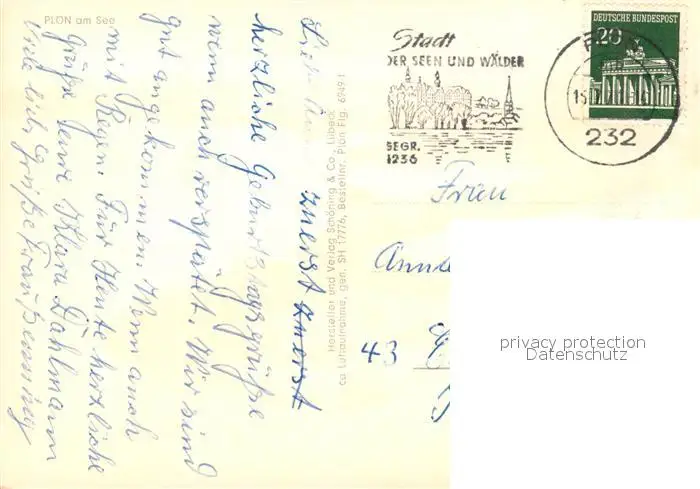 PLÖN am See
Liebe
zuerst zuerst
herzliche Geburtstagsgrüße
wenn auch verspätet. Wir sind
gut angekommen. Wenn auch
mit Regen. Für Heute herzliche
Grüße Deine Klara Dahlmann
viele liebe Grüße Frau
Hersteller und Verlag Schöning & Co., Lübeck
ca Luftaufnahme, gen. SH 17776, Bestellnr. Plön Flg. 6949 i
Stadt
DER SEEN UND WÄLDER
SEGR.
1236
DEUTSCHE BUNDESPOST
20
232
Frau
43
privacy protection
Datenschutz